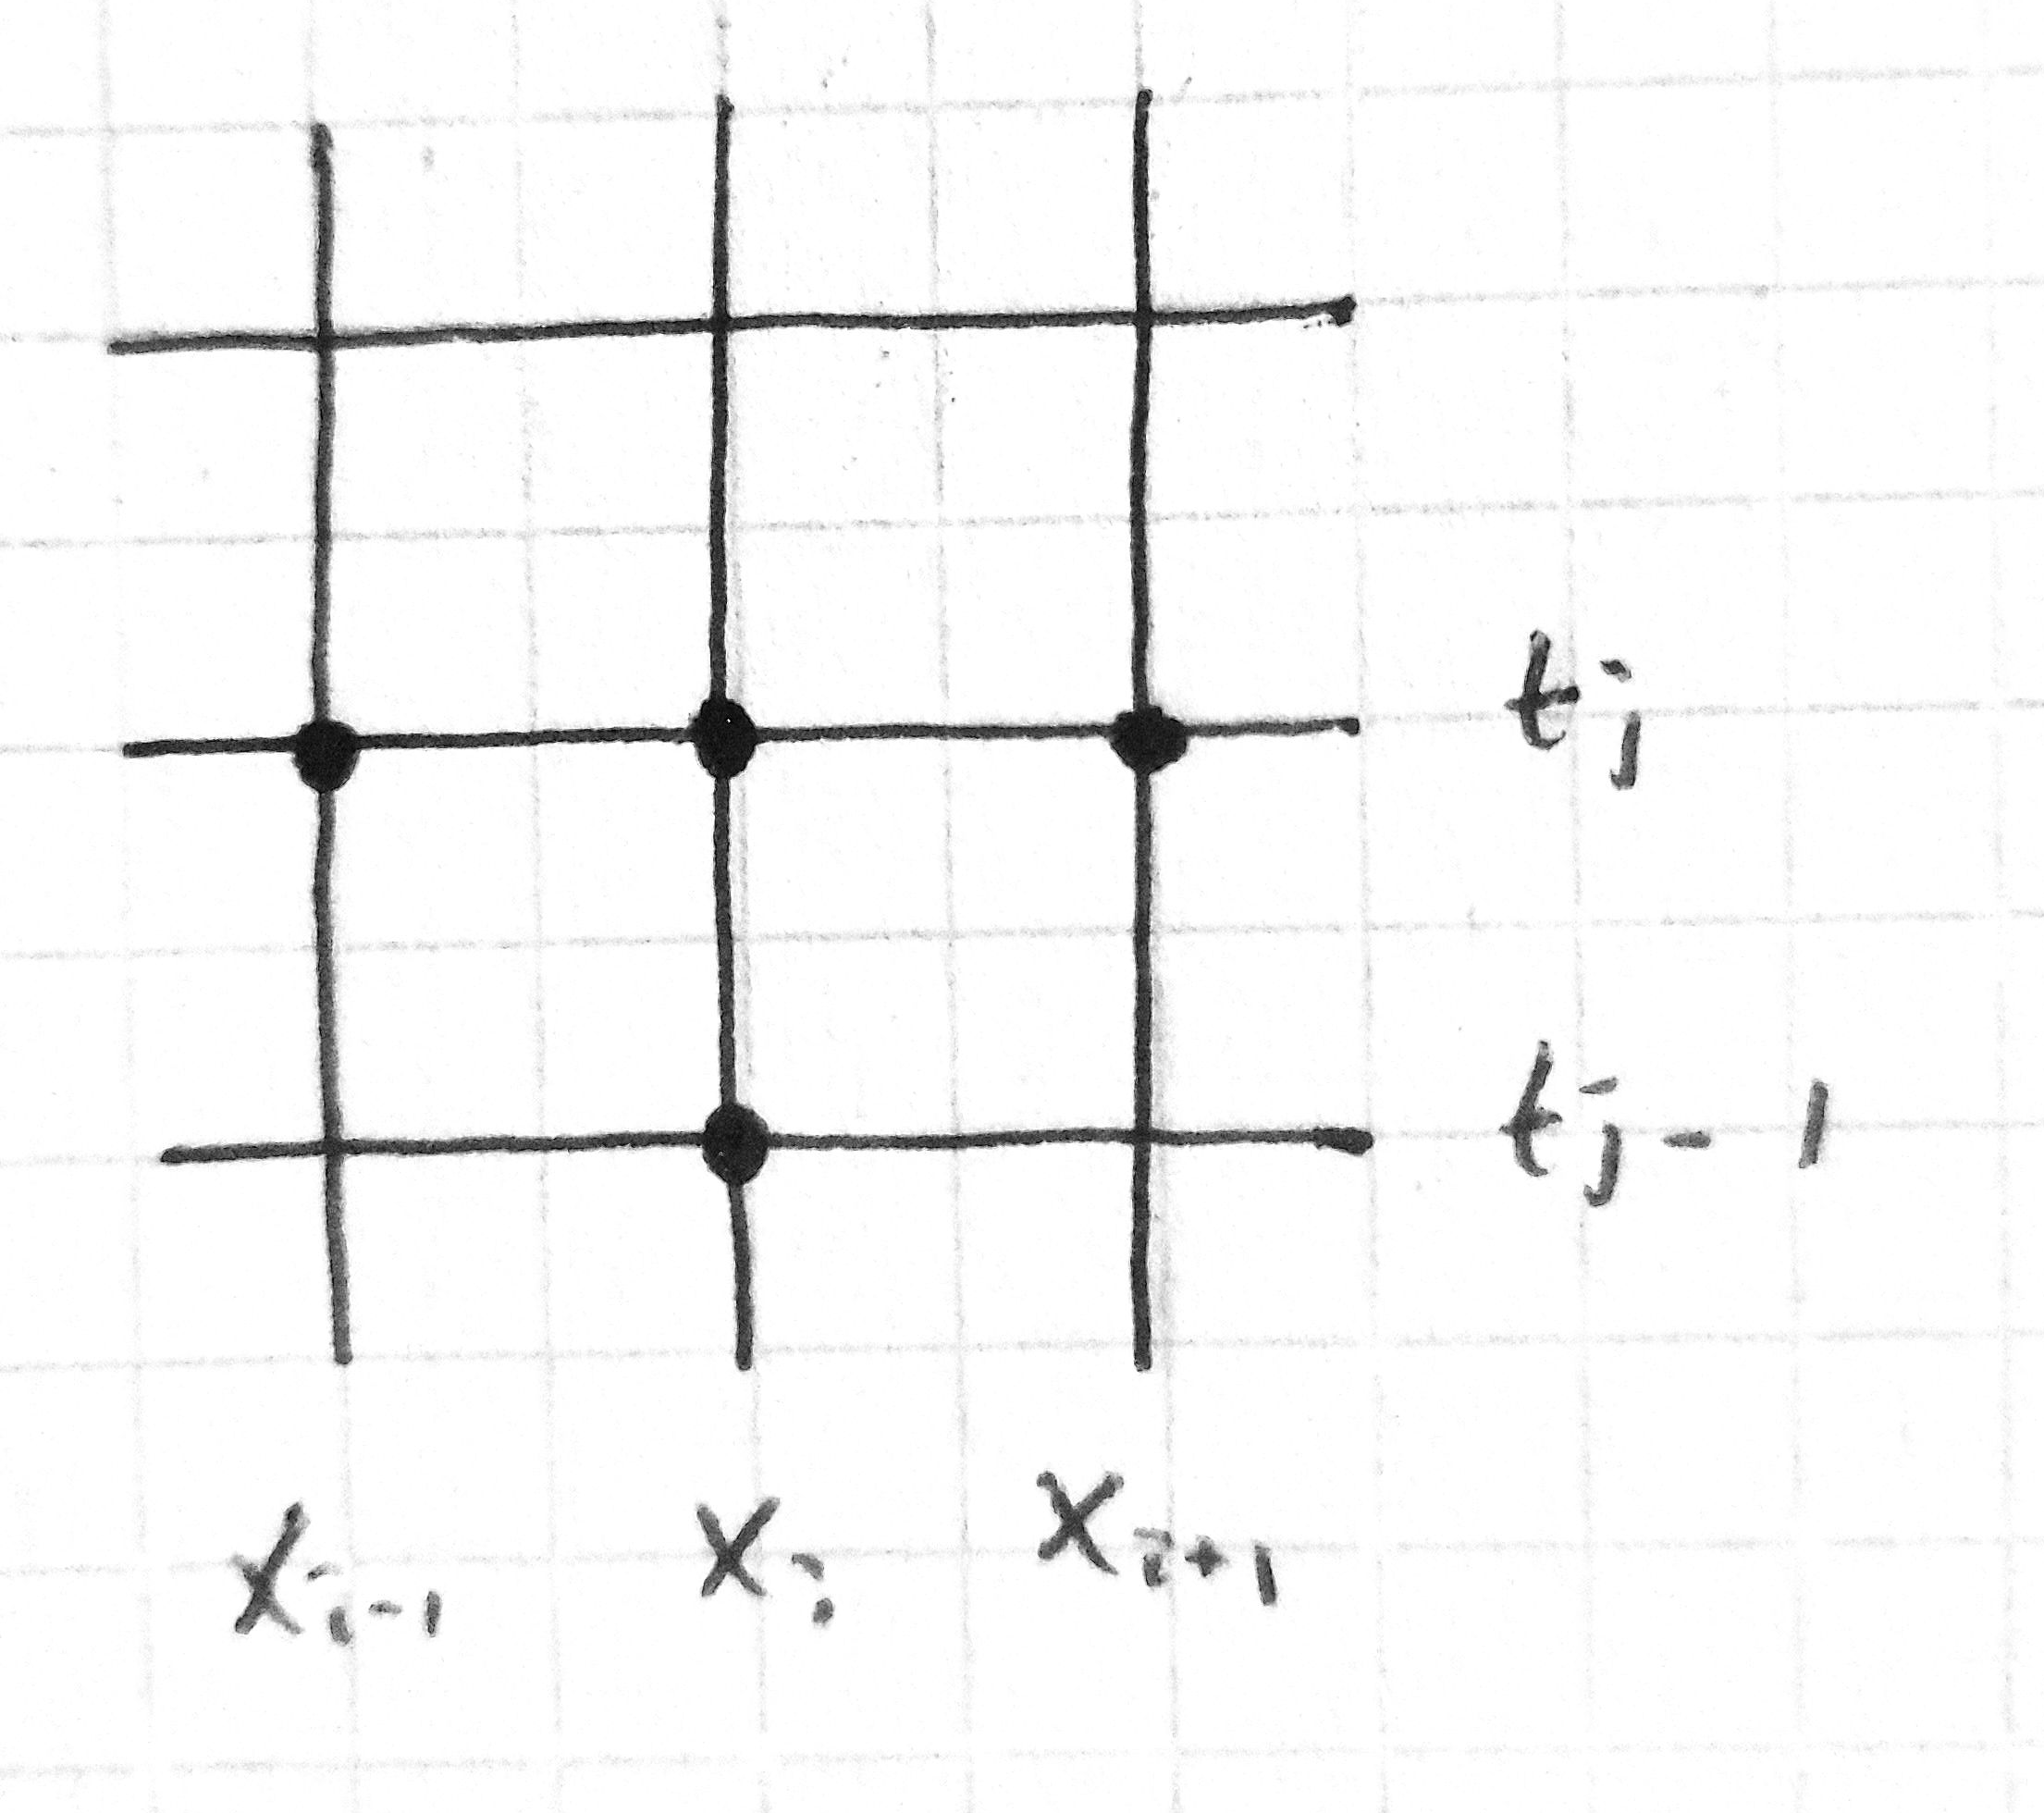 tj
tj-1
xi-1
xi
xi+1